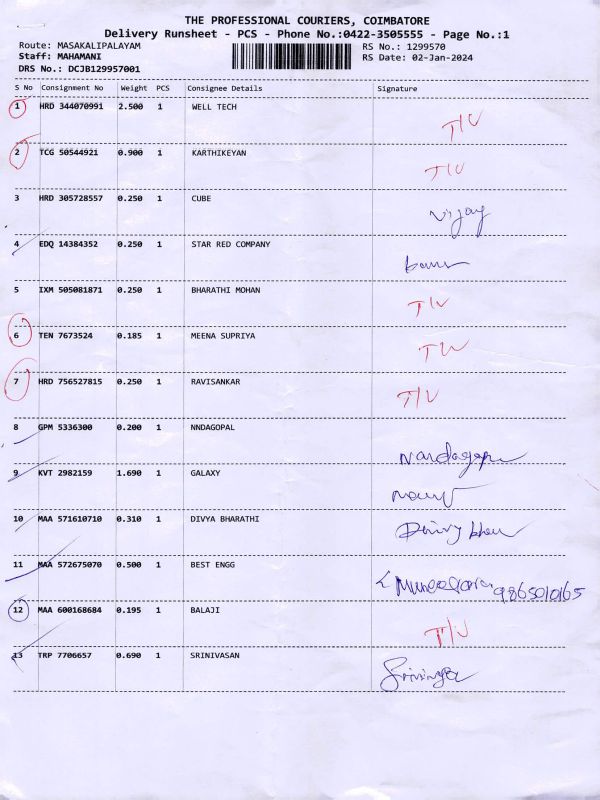 THE PROFESSIONAL COURIERS, COIMBATORE
Delivery Runsheet - PCS - Phone No.:0422-3505555 - Page No.:1
Route: MASAKALIPALAYAM RS No.: 1299570
Staff: MAHAMANI RS Date: 02-Jan-2024
DRS No.: DCJB129957001
S No Consignment No Weight PCS Consignee Details Signature
1 HRD 344070991 2.500 1 WELL TECH T/U
2 TCG 50544921 0.900 1 KARTHIKEYAN T/U
3 HRD 305728557 0.250 1 CUBE Vijay
4 EDQ 14384352 0.250 1 STAR RED COMPANY
5 IXM 505081871 0.250 1 BHARATHI MOHAN T/U
6 TEN 7673524 0.185 1 MEENA SUPRIYA T/U
7 HRD 756527815 0.250 1 RAVISANKAR T/U
8 GPM 5336300 0.200 1 NNDAGOPAL Nandagopa
9 KVT 2982159 1.690 1 GALAXY
10 MAA 571610710 0.310 1 DIVYA BHARATHI
11 MAA 572675070 0.500 1 BEST ENGG 9865010165
12 MAA 600168684 0.195 1 BALAJI T/U
13 TRP 7706657 0.690 1 SRINIVASAN